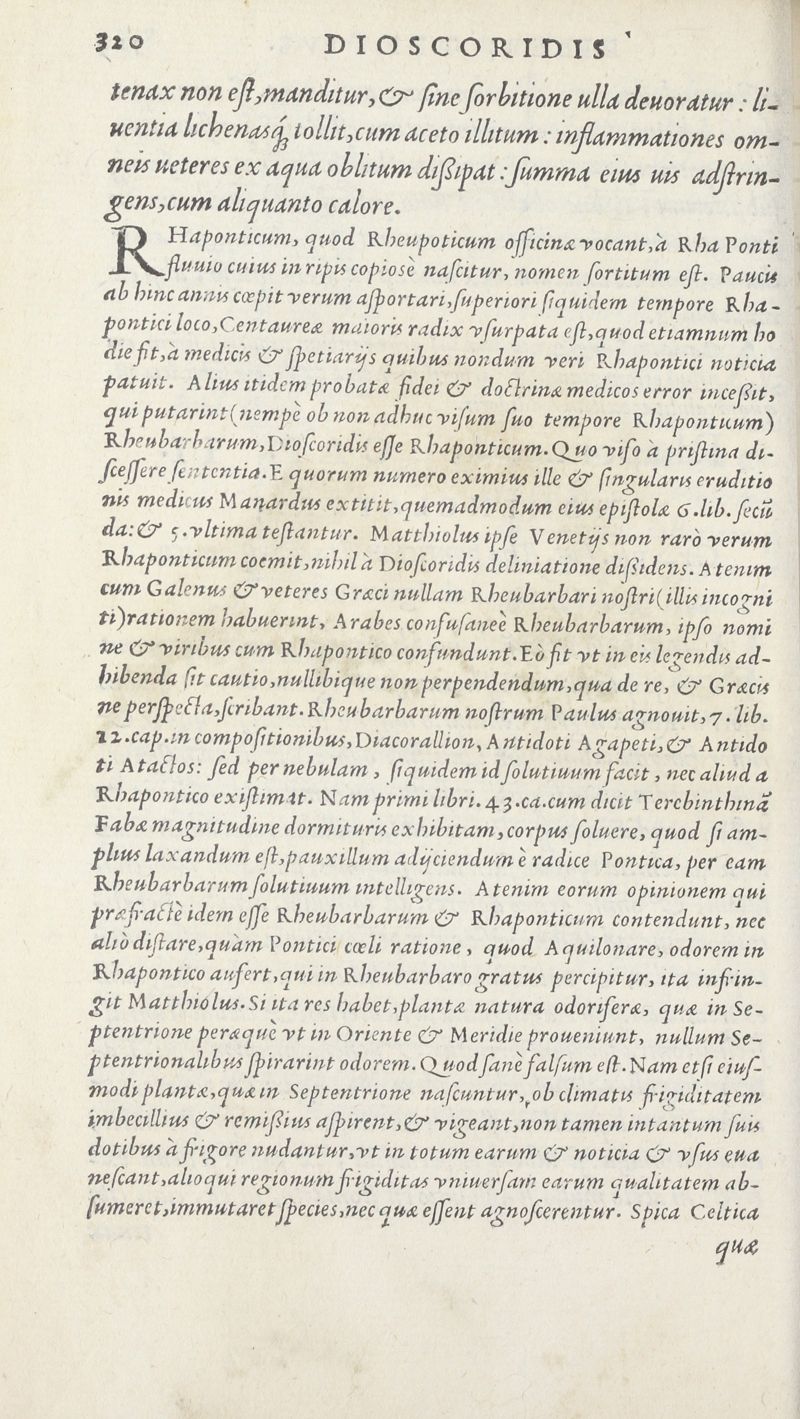 320 DIOSCORIDIS
tenax non eſt,manditur,& ſine ſorbitione ulla deuoratur : li-
uentia lichenasq́; tollit,cum aceto illitum : inflammationes om-
neis ueteres ex aqua oblitum dißipat : ſumma eius uis adſtrin-
gens,cum aliquanto calore.
RHaponticum, quod Rheupoticum officinæ vocant,à Rha Ponti
fluuio cuius in ripis copiosè naſcitur, nomen ſortitum eſt. Paucis
ab hinc annis cœpit verum aſportari,ſuperiori ſiquidem tempore Rha-
pontici loco,Centaureæ maioris radix vſurpata eſt,quod etiamnum ho
die fit,à medicis & ſpetiarijs quibus nondum veri Rhapontici noticia
patuit. Alius itidem probatæ fidei & doctrinæ medicos error inceßit,
qui putarint(nempè ob non adhuc viſum ſuo tempore Rhaponticum)
Rheubarbarum,Dioſcoridis eſſe Rhaponticum.Quo viſo à priſtina di-
ſceſſere ſententia.E quorum numero eximius ille & ſingularis eruditio
nis medicus Manardus extitit,quemadmodum eius epiſtolæ 6.lib.ſecũ
da:& 5.vltima teſtantur. Matthiolus ipſe Venetijs non rarò verum
Rhaponticum coemit,nihil à Dioſcoridis deliniatione dißidens. Atenim
cum Galenus & veteres Græci nullam Rheubarbari noſtri(illis incogni
ti)rationem habuerint, Arabes confuſaneè Rheubarbarum, ipſo nomi
ne & viribus cum Rhapontico confundunt.Eò fit vt in eis legendis ad-
hibenda ſit cautio,nullibique non perpendendum,qua de re, & Græcis
ne perſpecta,ſcribant.Rheubarbarum noſtrum Paulus agnouit,7.lib.
12.cap.in compoſitionibus,Diacorallion, Antidoti Agapeti,& Antido
ti Atactos: ſed per nebulam , ſiquidem id ſolutiuum facit , nec aliud a
Rhapontico exiſtimat. Nam primi libri.43.ca.cum dicit Terebinthinã
Fabæ magnitudine dormituris exhibitam,corpus ſoluere, quod ſi am-
plius laxandum eſt,pauxillum adijciendum è radice Pontica, per eam
Rheubarbarum ſolutiuum intelligens. Atenim eorum opinionem qui
præfractè idem eſſe Rheubarbarum & Rhaponticum contendunt, nec
aliò diſtare,quàm Pontici cœli ratione , quod Aquilonare, odorem in
Rhapontico aufert,qui in Rheubarbaro gratus percipitur, ita infrin-
git Matthiolus.Si ita res habet,plantæ natura odoriferæ, quæ in Se-
ptentrione peræquè vt in Oriente & Meridie proueniunt, nullum Se-
ptentrionalibus ſpirarint odorem.Quod ſanè falſum eſt.Nam etſi eiuſ-
modi plantæ,quæ in Septentrione naſcuntur, ob climatis frigiditatem
imbecillius & remißius aſpirent,& vigeant,non tamen intantum ſuis
dotibus à frigore nudantur,vt in totum earum & noticia & vſus eua
neſcant,alioqui regionum frigiditas vniuerſam earum qualitatem ab-
ſumeret,immutaret ſpecies,nec quæ eſſent agnoſcerentur. Spica Celtica
quæ